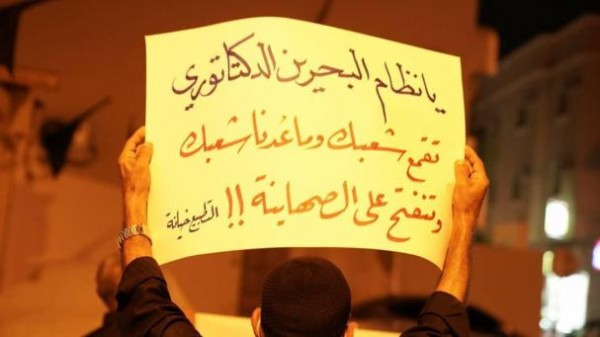 يا نظام البحرين الدكتاتوري
تقمع شعبك وما عدنا شعبك
وتنفتح على الصهاينة !! التطبيع خيانة